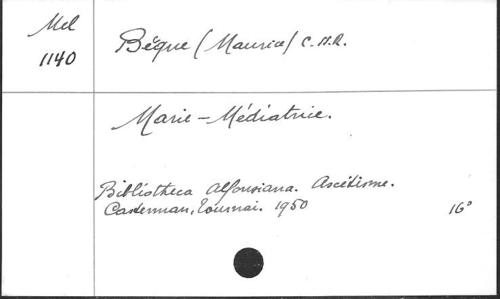 Mel
1140
Bèque (Maurice) C.SS.R.
Marie-Médiatrice.
Bibliotheca Alfonsiana. Ascétisme.
Casterman, Tournai. 1950
16°